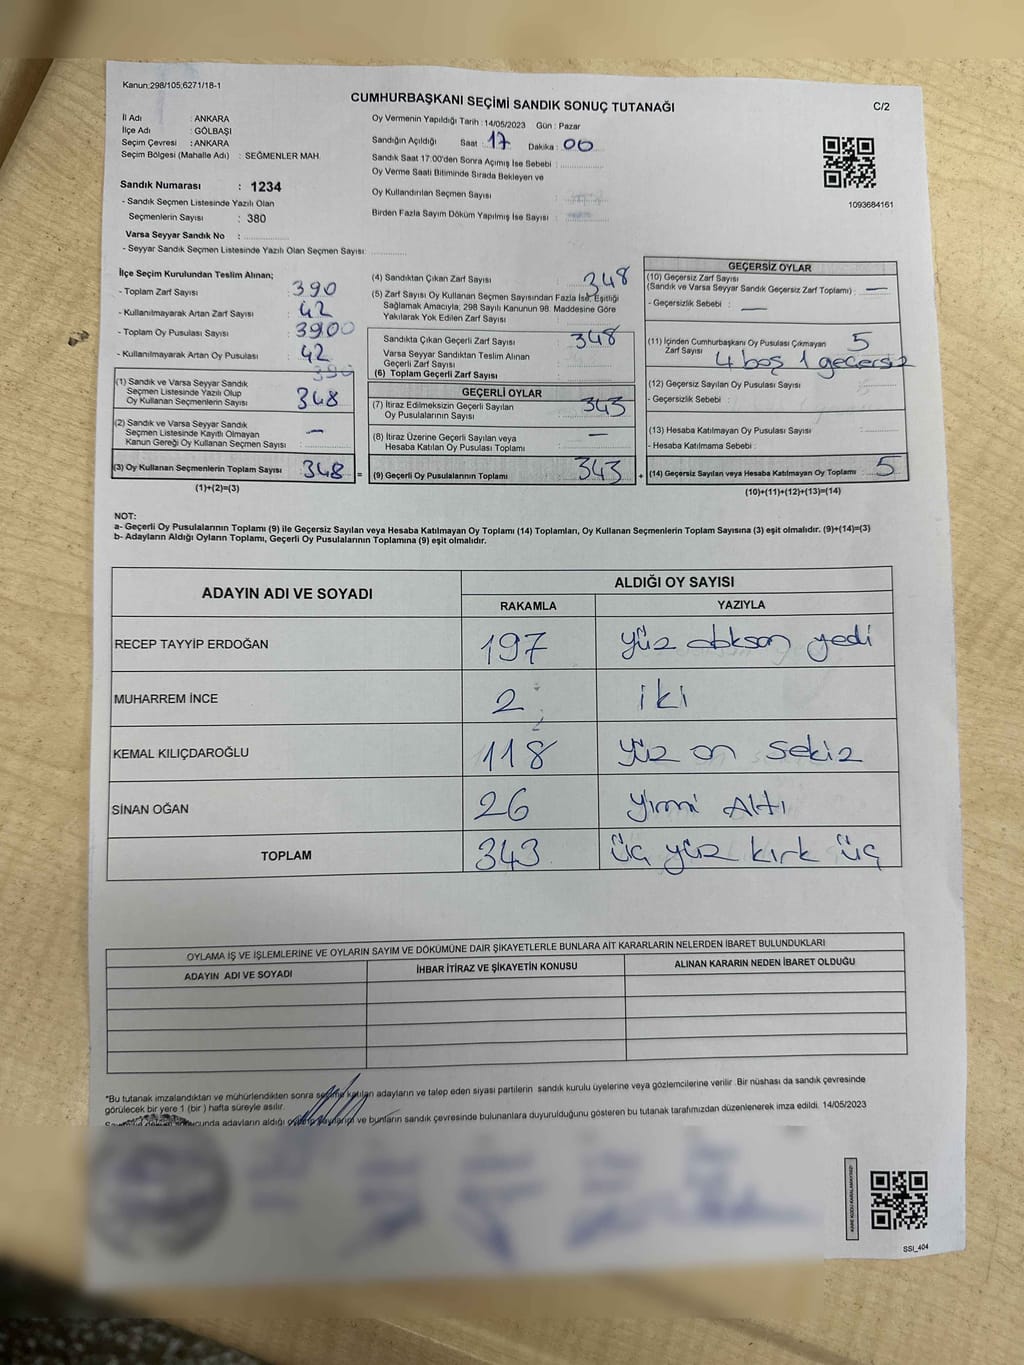 Kanun:298/105;6271/18-1
CUMHURBAŞKANI SEÇİMİ SANDIK SONUÇ TUTANAĞI
C/2
İl Adı : ANKARA
İlçe Adı : GÖLBAŞI
Seçim Çevresi : ANKARA
Seçim Bölgesi (Mahalle Adı) : SEĞMENLER MAH.
Sandık Numarası : 1234
- Sandık Seçmen Listesinde Yazılı Olan
Seçmenlerin Sayısı : 380
Varsa Seyyar Sandık No :
- Seyyar Sandık Seçmen Listesinde Yazılı Olan Seçmen Sayısı:
Oy Vermenin Yapıldığı Tarih : 14/05/2023 Gün : Pazar
Sandığın Açıldığı Saat : 17 Dakika : 00
Sandık Saat 17:00'den Sonra Açımış İse Sebebi :
Oy Verme Saati Bitiminde Sırada Bekleyen ve
Oy Kullandırılan Seçmen Sayısı :
Birden Fazla Sayım Döküm Yapılmış İse Sayısı :
1093684161
İlçe Seçim Kurulundan Teslim Alınan;
- Toplam Zarf Sayısı : 390
- Kullanılmayarak Artan Zarf Sayısı : 42
- Toplam Oy Pusulası Sayısı : 3900
- Kullanılmayarak Artan Oy Pusulası : 42
390
(1) Sandık ve Varsa Seyyar Sandık
Seçmen Listesinde Yazılı Olup
Oy Kullanan Seçmenlerin Sayısı : 348
(2) Sandık ve Varsa Seyyar Sandık
Seçmen Listesinde Kayıtlı Olmayan
Kanun Gereği Oy Kullanan Seçmen Sayısı : —
(3) Oy Kullanan Seçmenlerin Toplam Sayısı : 348 =
(1)+(2)=(3)
(4) Sandıktan Çıkan Zarf Sayısı : 348
(5) Zarf Sayısı Oy Kullanan Seçmen Sayısından Fazla İse, Eşitliği
Sağlamak Amacıyla, 298 Sayılı Kanunun 98. Maddesine Göre
Yakılarak Yok Edilen Zarf Sayısı :
Sandıkta Çıkan Geçerli Zarf Sayısı : 348
Varsa Seyyar Sandıktan Teslim Alınan
Geçerli Zarf Sayısı :
(6) Toplam Geçerli Zarf Sayısı :
GEÇERLİ OYLAR
(7) İtiraz Edilmeksizin Geçerli Sayılan
Oy Pusulalarının Sayısı : 343
(8) İtiraz Üzerine Geçerli Sayılan veya
Hesaba Katılan Oy Pusulası Toplamı : —
(9) Geçerli Oy Pusulalarının Toplamı : 343 +
GEÇERSİZ OYLAR
(10) Geçersiz Zarf Sayısı
(Sandık ve Varsa Seyyar Sandık Geçersiz Zarf Toplamı) : —
- Geçersizlik Sebebi : —
(11) İçinden Cumhurbaşkanı Oy Pusulası Çıkmayan
Zarf Sayısı : 5
4 boş 1 geçersiz
(12) Geçersiz Sayılan Oy Pusulası Sayısı :
- Geçersizlik Sebebi :
(13) Hesaba Katılmayan Oy Pusulası Sayısı :
- Hesaba Katılmama Sebebi :
(14) Geçersiz Sayılan veya Hesaba Katılmayan Oy Toplamı : 5
(10)+(11)+(12)+(13)=(14)
NOT:
a- Geçerli Oy Pusulalarının Toplamı (9) ile Geçersiz Sayılan veya Hesaba Katılmayan Oy Toplamı (14) Toplamları, Oy Kullanan Seçmenlerin Toplam Sayısına (3) eşit olmalıdır. (9)+(14)=(3)
b- Adayların Aldığı Oyların Toplamı, Geçerli Oy Pusulalarının Toplamına (9) eşit olmalıdır.
ADAYIN ADI VE SOYADI ALDIĞI OY SAYISI
RAKAMLA YAZIYLA
RECEP TAYYİP ERDOĞAN 197 yüz doksan yedi
MUHARREM İNCE 2 iki
KEMAL KILIÇDAROĞLU 118 yüz on sekiz
SİNAN OĞAN 26 yirmi Altı
TOPLAM 343 üç yüz kırk üç
OYLAMA İŞ VE İŞLEMLERİNE VE OYLARIN SAYIM VE DÖKÜMÜNE DAİR ŞİKAYETLERLE BUNLARA AİT KARARLARIN NELERDEN İBARET BULUNDUKLARI
ADAYIN ADI VE SOYADI İHBAR İTİRAZ VE ŞİKAYETİN KONUSU ALINAN KARARIN NEDEN İBARET OLDUĞU
*Bu tutanak imzalandıktan ve mühürlendikten sonra seçime katılan adayların ve talep eden siyasi partilerin sandık kurulu üyelerine veya gözlemcilerine verilir. Bir nüshası da sandık çevresinde
görülecek bir yere 1 (bir ) hafta süreyle asılır.
adayların aldığı ve bunların sandık çevresinde bulunanlara duyurulduğunu gösteren bu tutanak tarafımızdan düzenlenerek imza edildi. 14/05/2023
KARE KODU KARALAMAYINIZ!
SSI_404